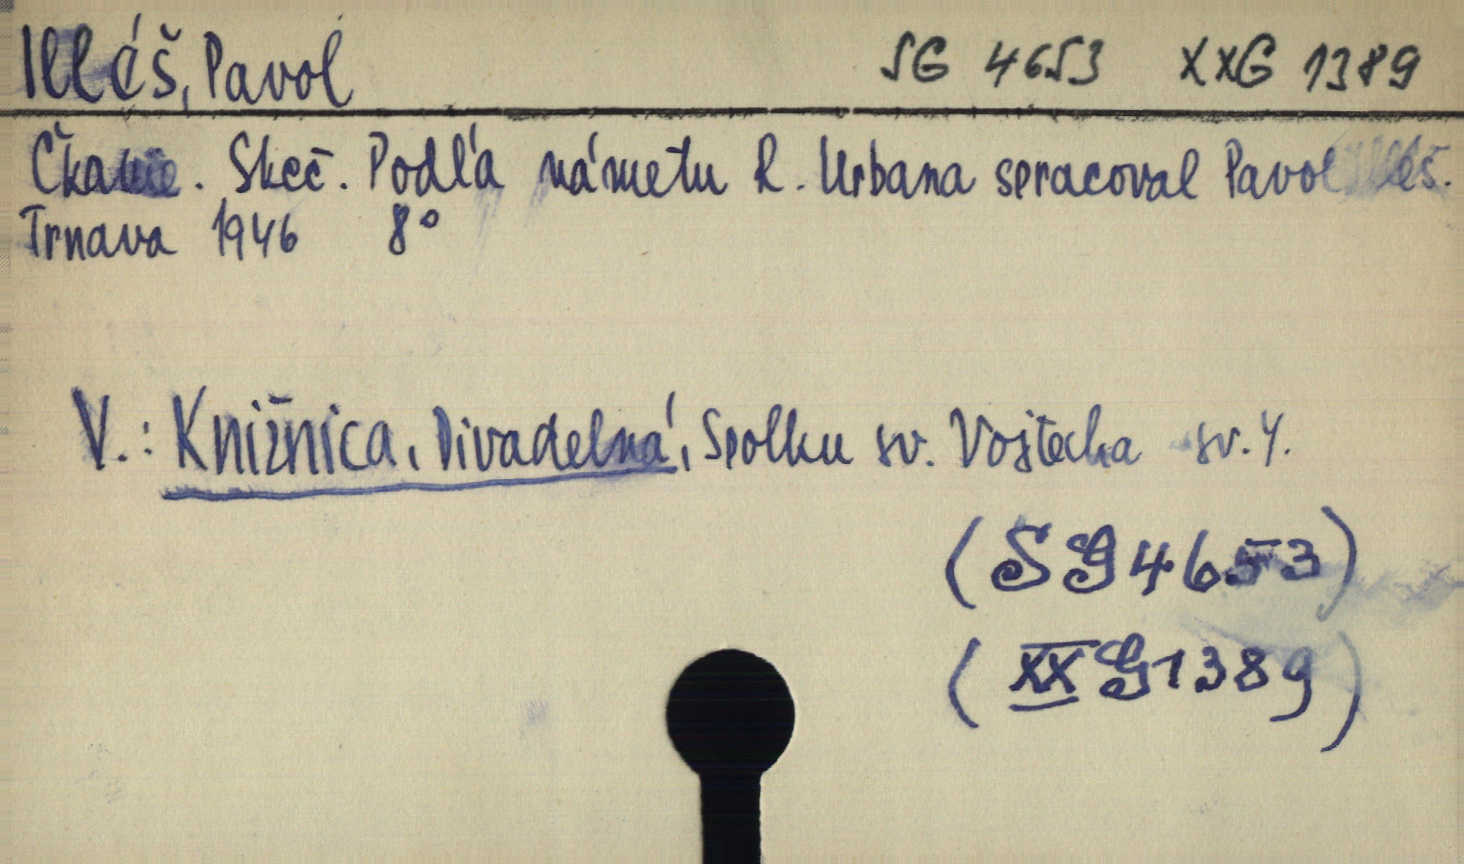 Illéš, Pavol SG 4653 XXG 1389
Čkanie. Skeč. Podľa námetu R. Urbana spracoval Pavol Illéš.
Trnava 1946 8°
V.: Knižnica, Divadelná, Spolku sv. Vojtecha sv. 4.
(SG 4653)
(XX G 1389)